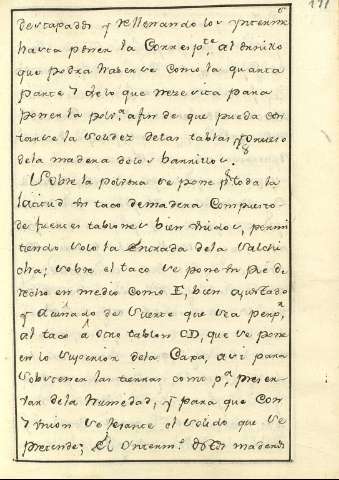 destapadas y rellenando los
hasta poner la Correspte. al
que podra haberse como la quarta
parte y de lo que necesita para
poner la polvra. a fin de que pueda con
tarse la solidez de las tablas y grueso
dela madera de los barrilles.
Sobre la polvora se pone pr. toda la
latitud un taco de madera Compuesto
de fuertes tablones bien unidos, permi
tiendo solo la entrada dela salchi
cha; sobre el taco se pone un pie de
recho en medio como E, bien ajustado
y acuñado de suerte que sea perpr.
al taco á otro tablon CD, que se pone
en lo superior dela Capa, asi para
sobstener las tierras como pa. preser
var de la humedad, y para que con
y union se levante el solido que se
pretende; El maderos